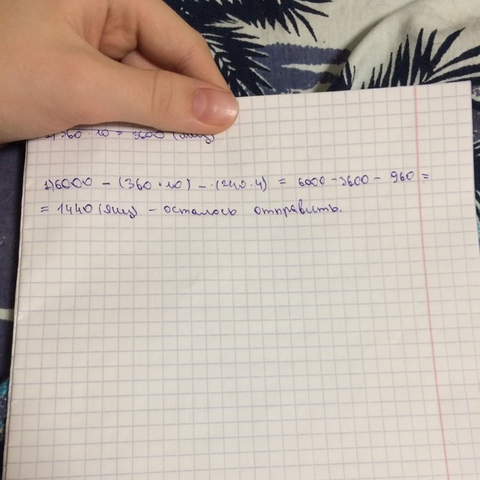 1) 360 · 10 = 3600 (ящ)
1) 6000 - (360 · 10) - (240 · 4) = 6000 - 3600 - 960 =
= 1440 (ящ) - осталось отправить.